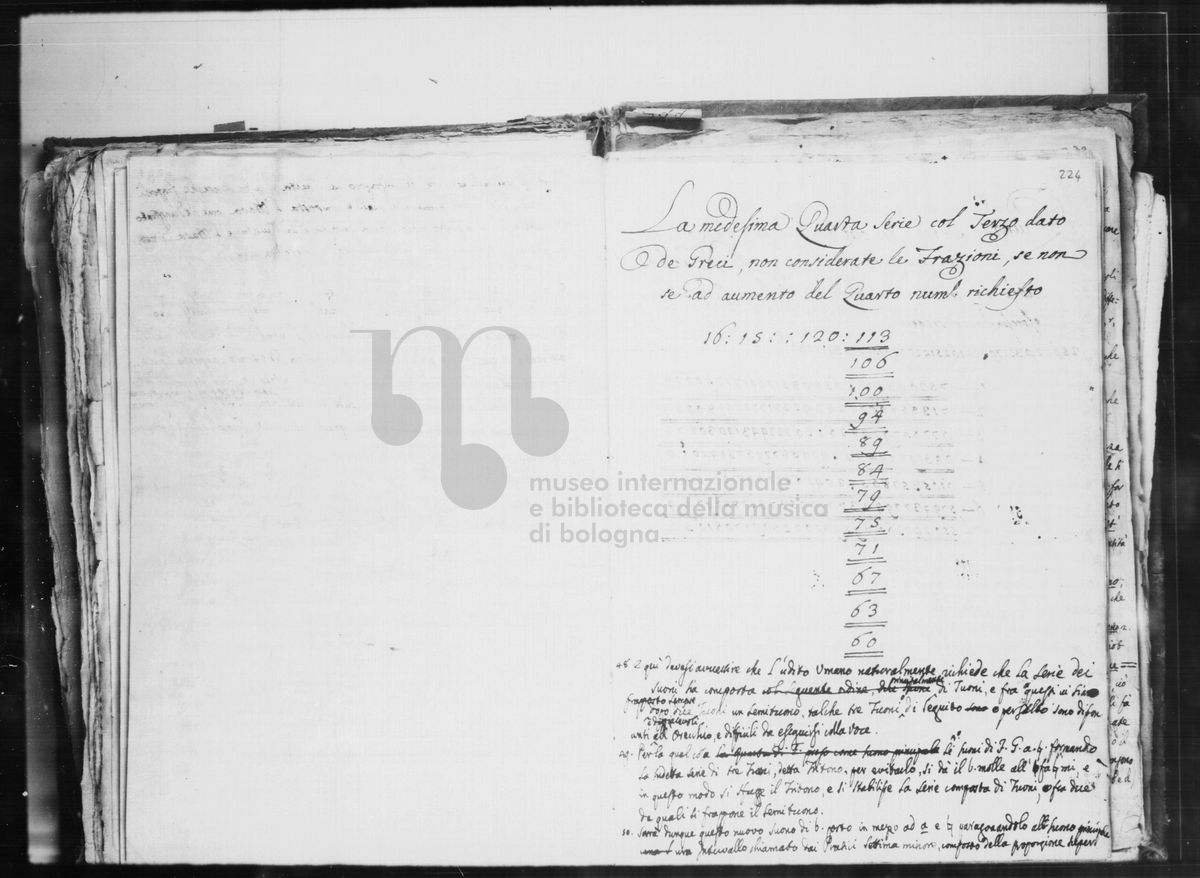 224
La medesima Quarta serie col Terzo dato
de Greci, non considerate le Frazioni, se non
se ad aumento del Quarto num.° richiesto
16 : 15 : : 120 : 113
106
100
94
89
84
79
75
71
67
63
60
museo internazionale
e biblioteca della musica
di bologna
48. E qui devesi avvertire che l'udito Umano naturalmente richiede che la serie dei
suoni sia composta principalmente di Tuoni, e fra questi vi sia
frapposto sempre
dopo due Tuoni un semituono, talche tre Tuoni di seguito o per salto sono dison
anti all'Orecchio, e difficili da eseguirsi colla voce.
49. Per la qual cosa li suoni di F. G. a. ♮. formando
la sudetta serie di tre Tuoni, detta Tritono, per evitarlo, si dà il b. molle all' , e
in questo modo si sfugge il Tritono, e si stabilisse la serie composta di Tuoni, e fra due
de quali si frappone il semituono.
50. Sarà dunque questo nuovo suono di b. posto in mezo ad a e ♮ paragonandolo all suono principale
una Intervallo chiamato dai Pratici settima minore, composto della proporzione